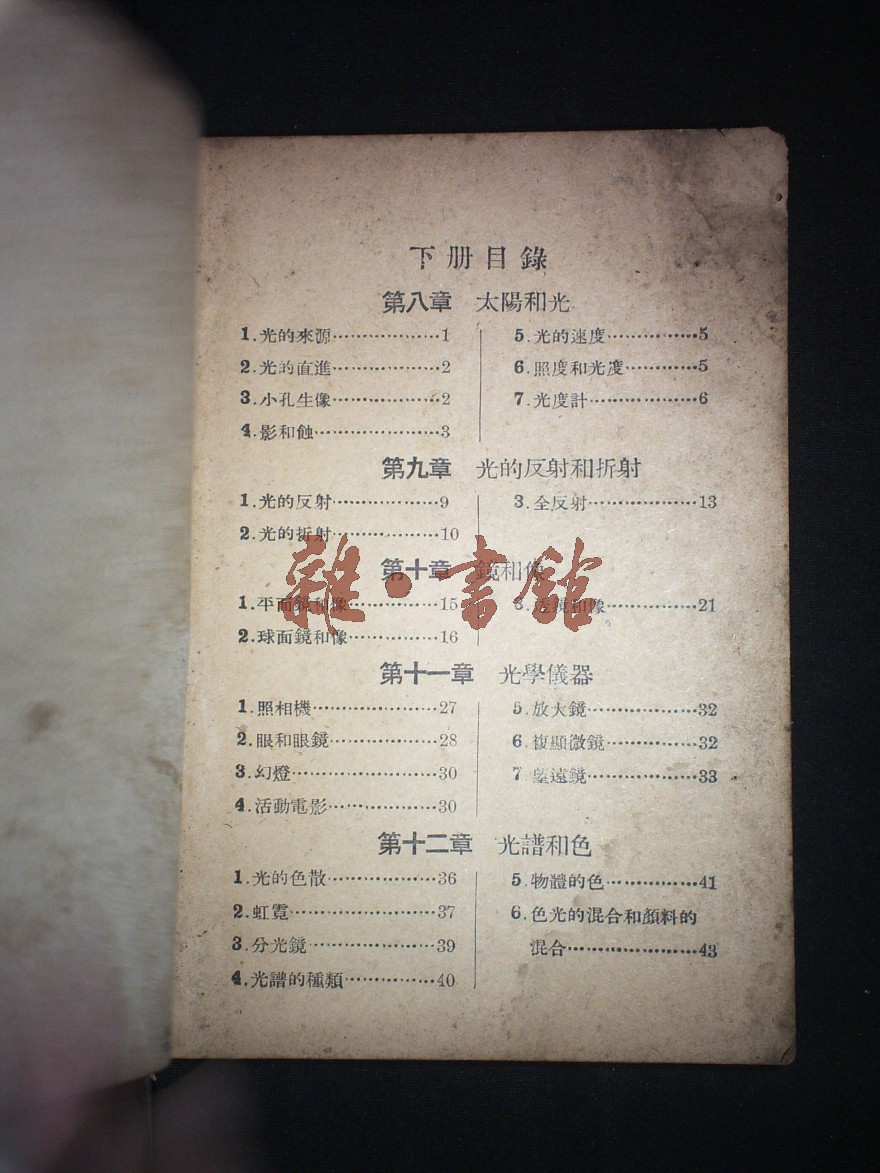 下册目錄
第八章 太陽和光
1.光的來源………………1
2.光的直進………………2
3.小孔生像………………2
4.影和蝕…………………3
5.光的速度……………5
6.照度和光度…………5
7.光度計………………6
第九章 光的反射和折射
1.光的反射………………9
2.光的折射………………10
3.全反射………………13
第十章 鏡和像
1.平面鏡和像……………15
2.球面鏡和像……………16
3.透鏡和像……………21
雜·書館
第十一章 光學儀器
1.照相機…………………27
2.眼和眼鏡………………28
3.幻燈……………………30
4.活動電影………………30
5.放大鏡………………32
6.複顯微鏡……………32
7 望遠鏡………………33
第十二章 光譜和色
1.光的色散………………36
2.虹霓……………………37
3.分光鏡…………………39
4.光譜的種類……………40
5.物體的色……………41
6.色光的混合和顏料的
混合…………………43